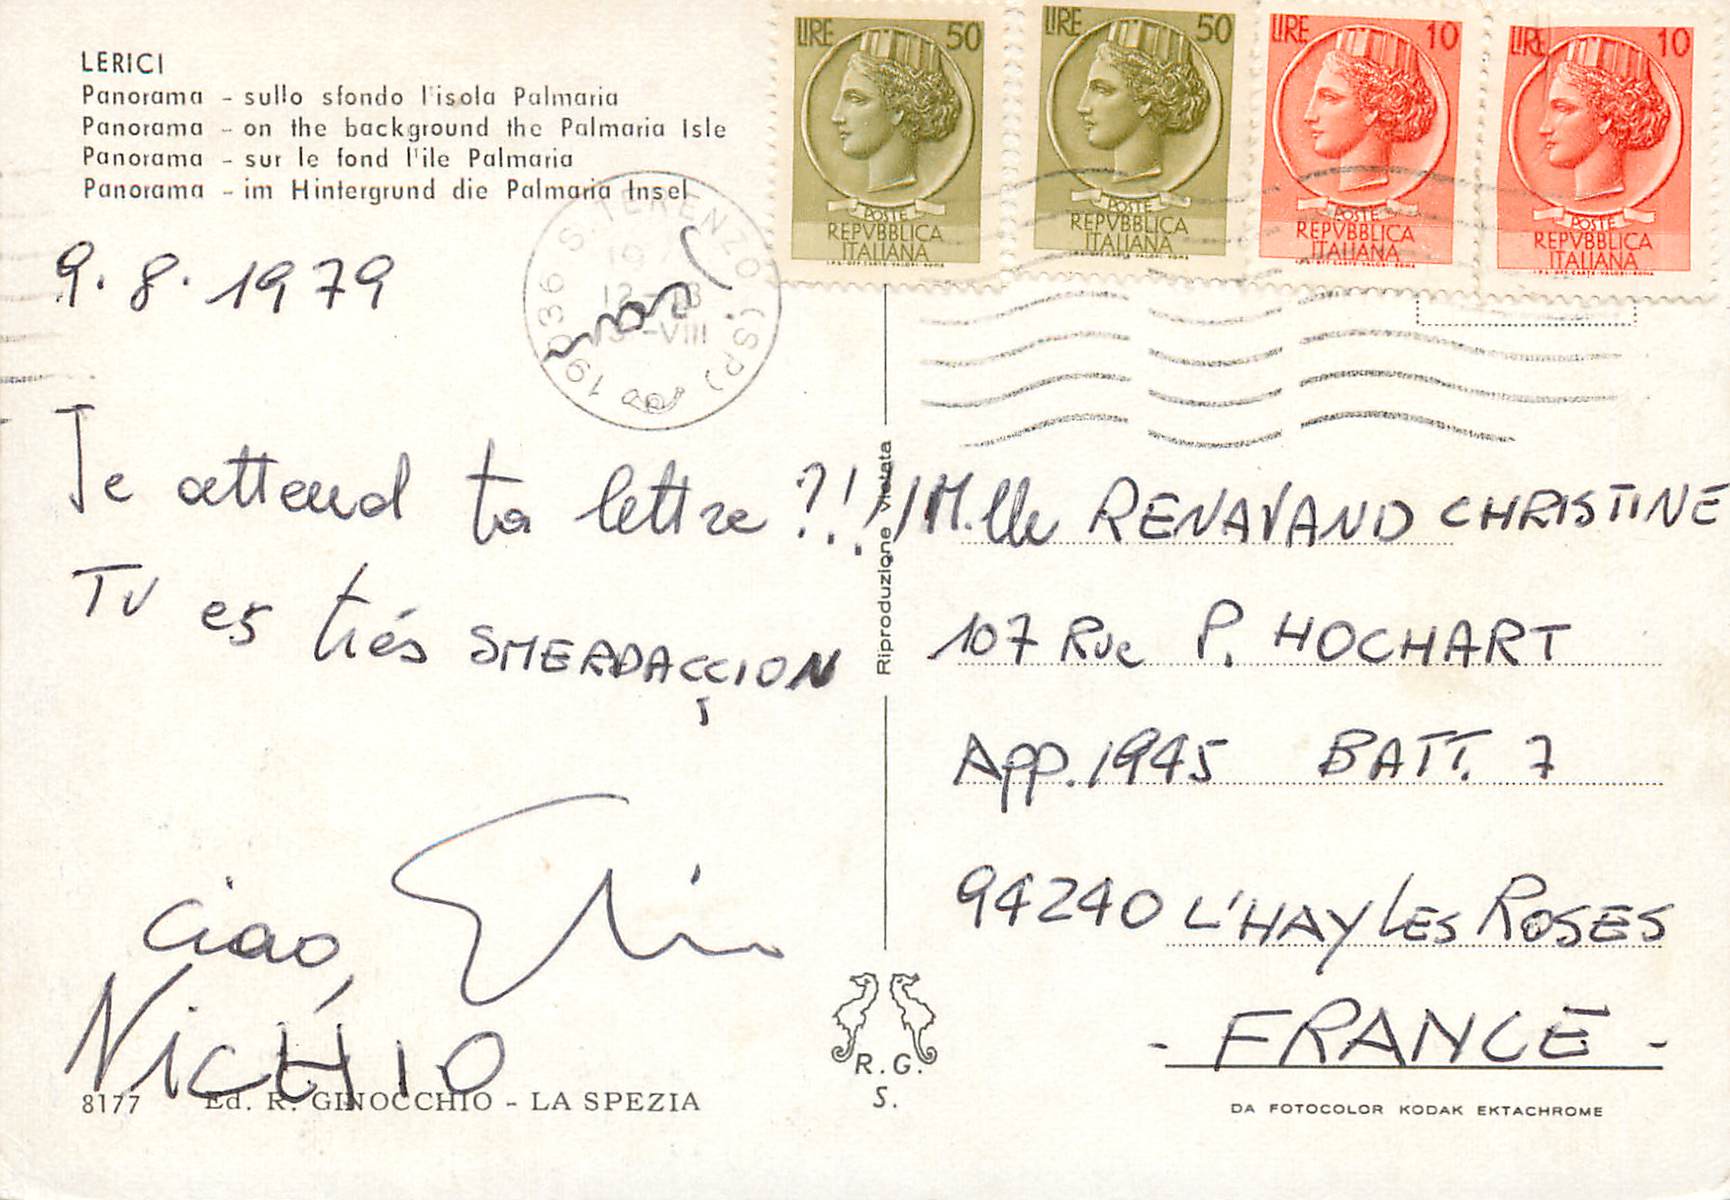 LERICI
Panorama - sullo sfondo l'isola Palmaria
Panorama - on the background the Palmaria Isle
Panorama - sur le fond l'ile Palmaria
Panorama - im Hintergrund die Palmaria Insel
LIRE 50
POSTE
REPVBBLICA
ITALIANA
I.P.S.-OFF.CARTE-VALORI-ROMA
LIRE 50
POSTE
REPVBBLICA
ITALIANA
I.P.S.-OFF.CARTE-VALORI-ROMA
LIRE 10
POSTE
REPVBBLICA
ITALIANA
I.P.S.-OFF.CARTE-VALORI-ROMA
LIRE 10
POSTE
REPVBBLICA
ITALIANA
I.P.S.-OFF.CARTE-VALORI-ROMA
19036 S. TERENZO (SP)
VIII
9.8.1979
Je attend ta lettre ?!!
TU es trés SMERDAÇÇION
ciao,
NICHIO
Riproduzione vietata
M.lle RENAVAND CHRISTINE
107 Rue P. HOCHART
App. 1945 BATT. 7
94240 L'HAY LES ROSES
- FRANCE -
R.G.
S.
8177 Ed. R. GINOCCHIO - LA SPEZIA
DA FOTOCOLOR KODAK EKTACHROME